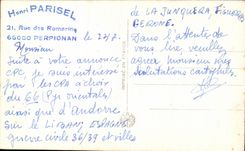 Henri PARISEL
21, Rue des Romarins
66000 PERPIGNAN
le 24/7.
Monsieur
Suite à votre annonce
CPC, je suis intéressé
par les CPA achir
du 66 (Pyr. orientales)
ainsi que d'Andorre.
Sur le LIBAN, ESPAGNE
guerre civile 36/39 et villes
de LA JUNQUERA, FIGUERAS
GERONE.
Dans l'attente de
vous lire, veuillez
agréer monsieur mes
salutations cordiales